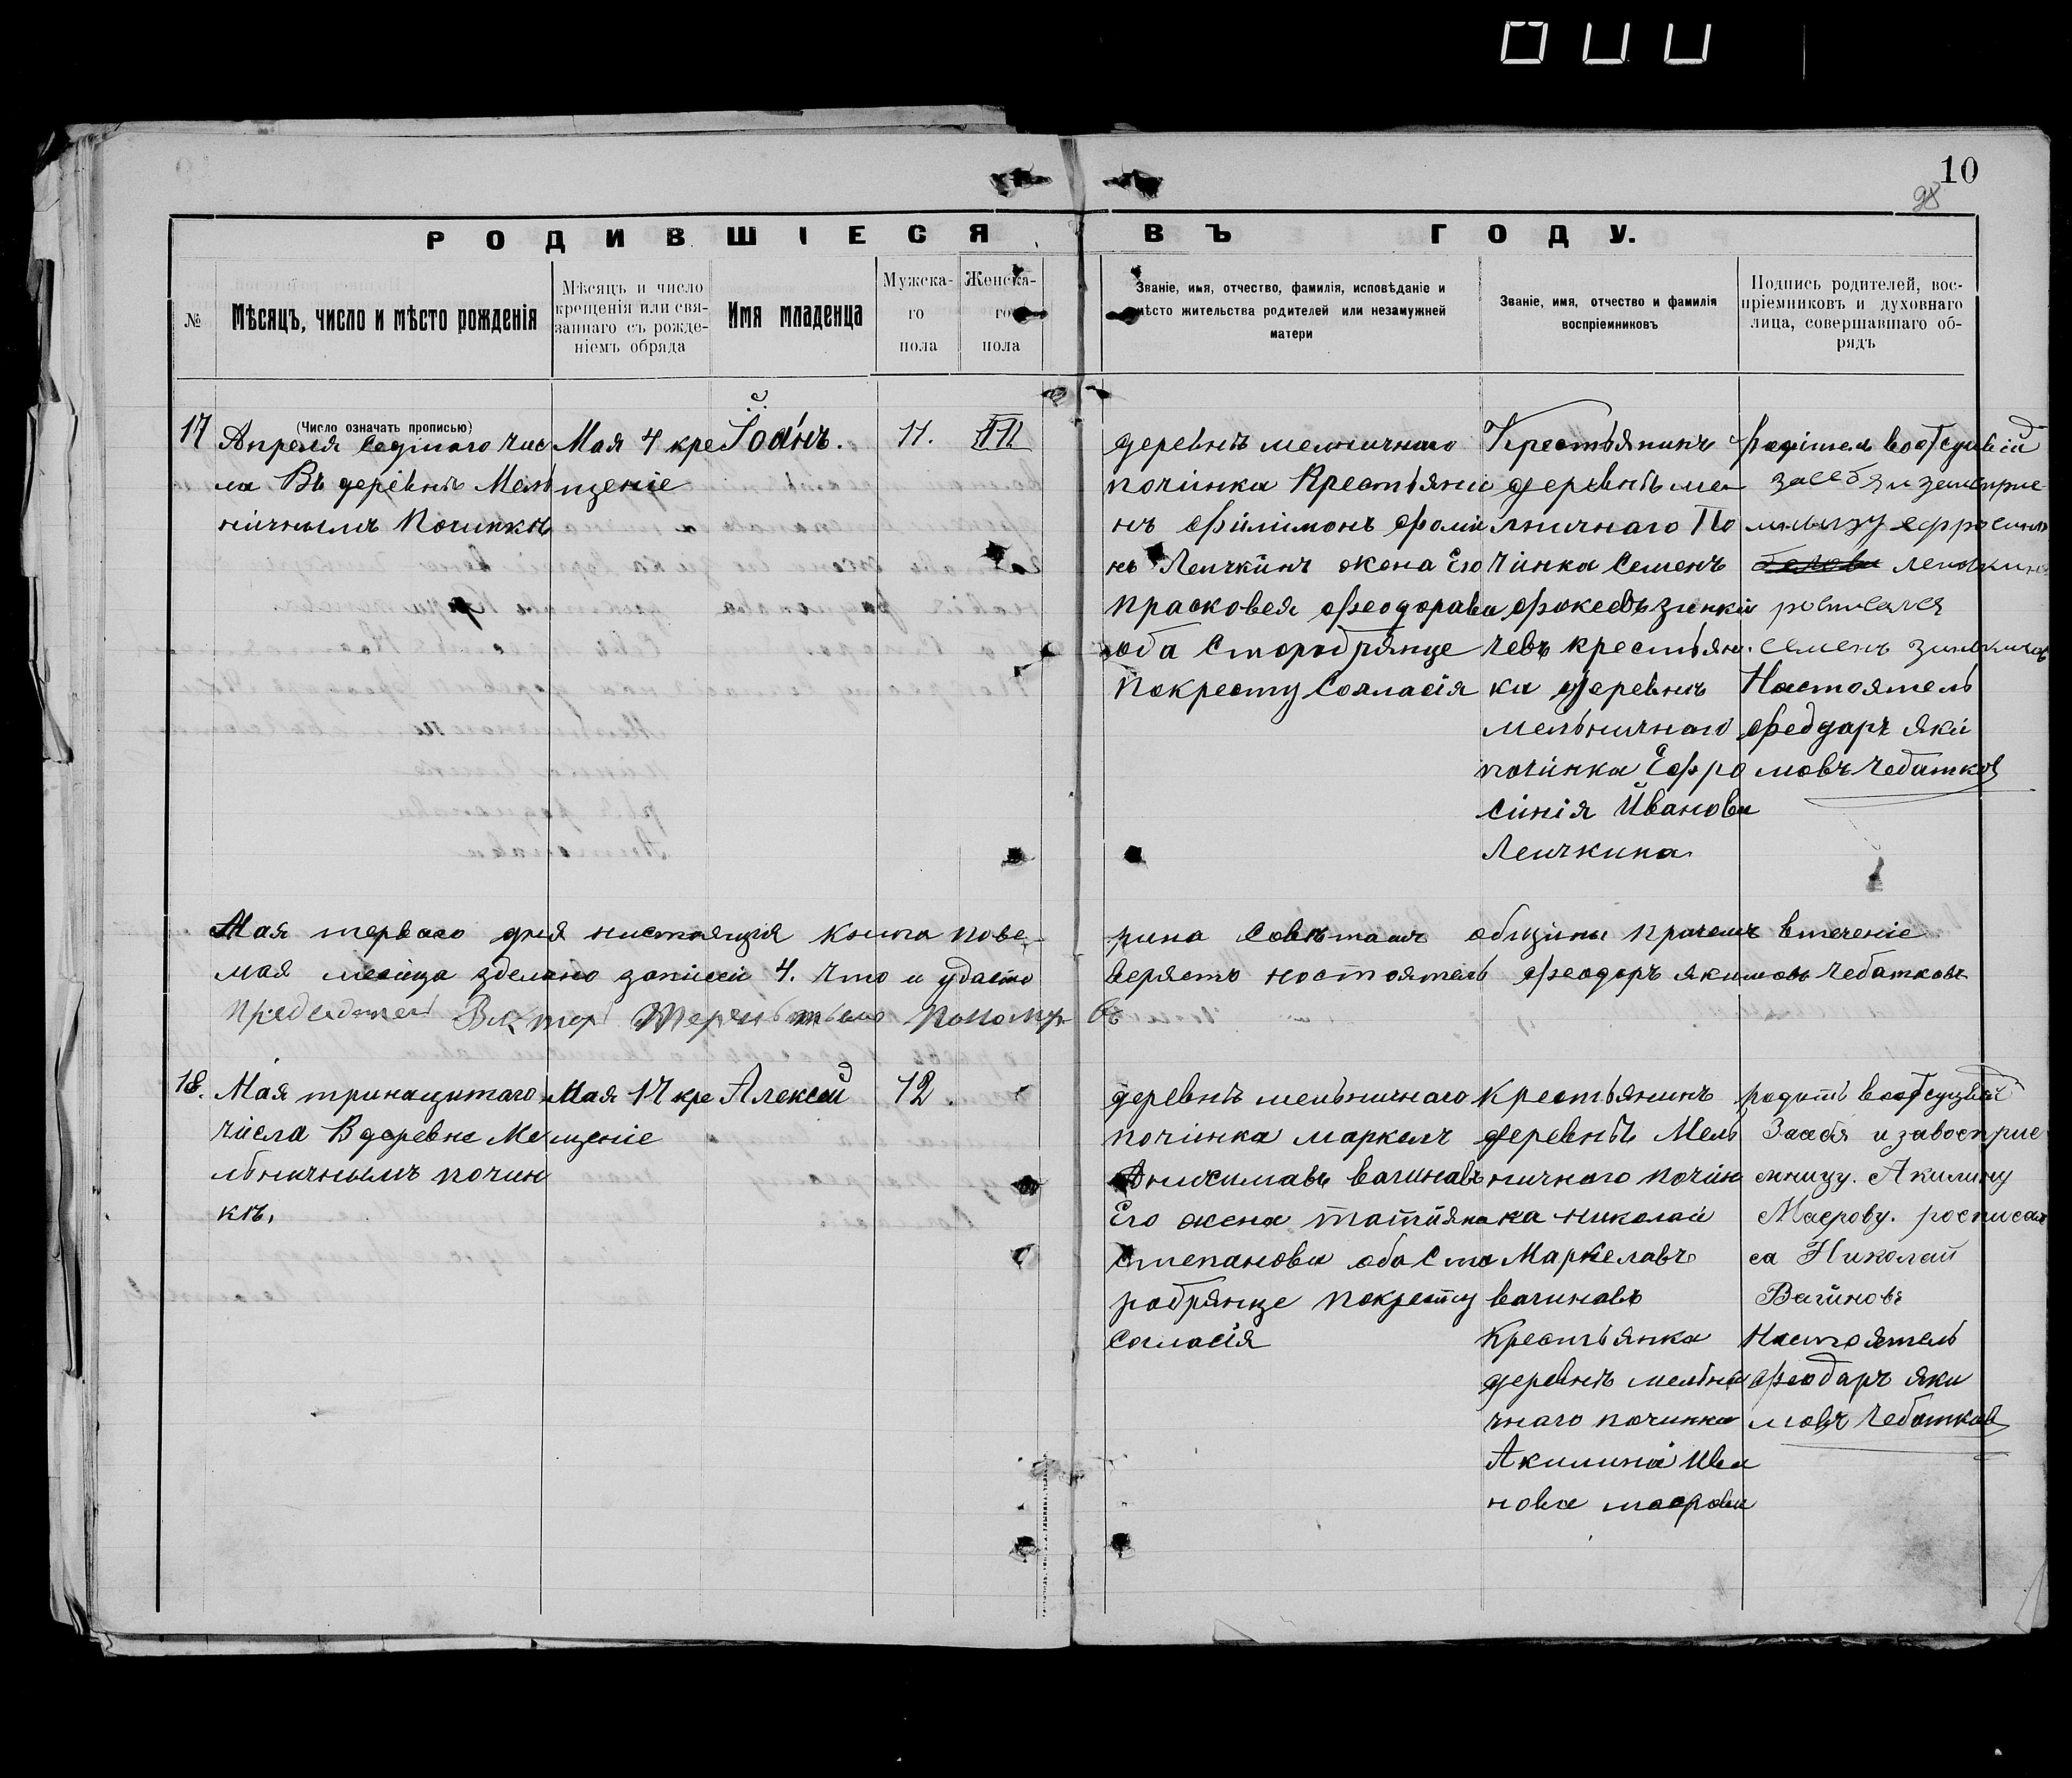 10
98
РОДИВШІЕСЯ ВЪ ГОДУ.
№
Мѣсяцъ, число и мѣсто рожденія
Мѣсяцъ и число
крещенія или свя-
заннаго съ рожде-
ніемъ обряда
Имя младенца
Мужска-
го
пола
Женска-
го
пола
Званіе, имя, отчество, фамилія, исповѣданіе и
мѣсто жительства родителей или незамужней
матери
Званіе, имя, отчество и фамилія
воспріемниковъ
Подпись родителей, вос-
пріемниковъ и духовнаго
лица, совершавшаго об-
рядъ
(Число означать прописью)
17
Апреля седмого чис
ла Въ деревнѣ Мель
ничнымъ Починкѣ
Мая 4 кре
щеніе
Іоанъ.
11.
деревнѣ мелничнаго
починка Крестьяни
нъ Филімонъ Фомі
нъ Леичкинъ жена Его
прасковея феодорава
оба Сторобрянце
покресту Согласія
Крестьянинъ
деревнѣ ме
лничнаго По
чинка Семенъ
фокеевъ зинки
чевъ крестьян
ка деревнѣ
мельничнаго
починка Ефро
синія Иванова
Леичкина
засебя и
росписался
семенъ
Настоятель
федаръ яки
мовъ Чебатков
Мая первого дня настоящія книга пове
рина Советамъ общины причемъ втечение
мая месяца зделано записей 4. что и удасто
веряетъ ностоятель Феодоръ якимовъ Чебатковъ
18.
Мая тринацатаго
числа Вдеревне Ме
льничнымъ почин
кѣ.
Мая 17 кре
щеніе
Алексей
12.
деревнѣ мельничнаго
починка маркелъ
Анисимавъ вагинавъ
Его жена татияна
степановна оба Ста
робрянце покресту
согласія
Крестьянинъ
деревнѣ Мель
ничнаго почин
ка николай
Маркелавъ
вагиновъ
Крестьянка
деревнѣ мельни
чнаго починка
Акилина Ива
новна маерова
За себя и завосприе
мницу. Акилину
Маерову. росписал
са Николай
Вагиновъ
Настоятель
феодаръ яки
мовъ Чебатков